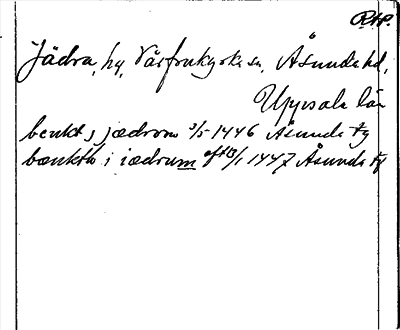 RAP.
Jädra, hg, Vårfrukyrka sn, Åsunda hd,
Uppsala län
benkt j jædrom 3/5 1446 Åsunda tg
bænkth i iædrum aft 13/1 1447 Åsunda tg